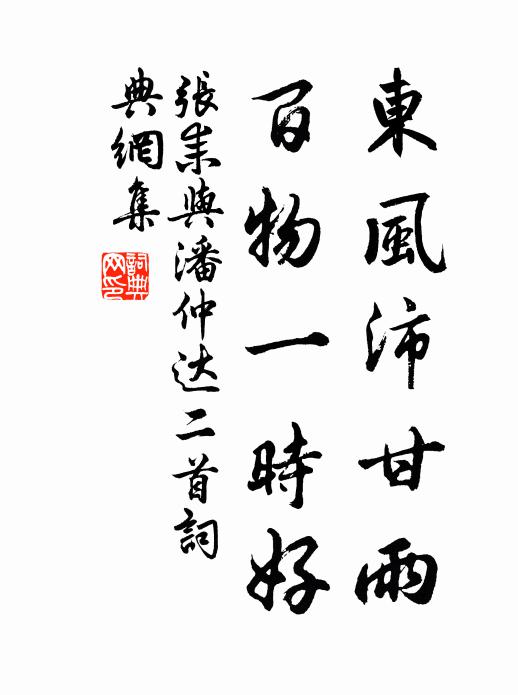 東風沛甘雨
百物一時好
張耒與潘仲达二首詞
典網集
詞典
网印